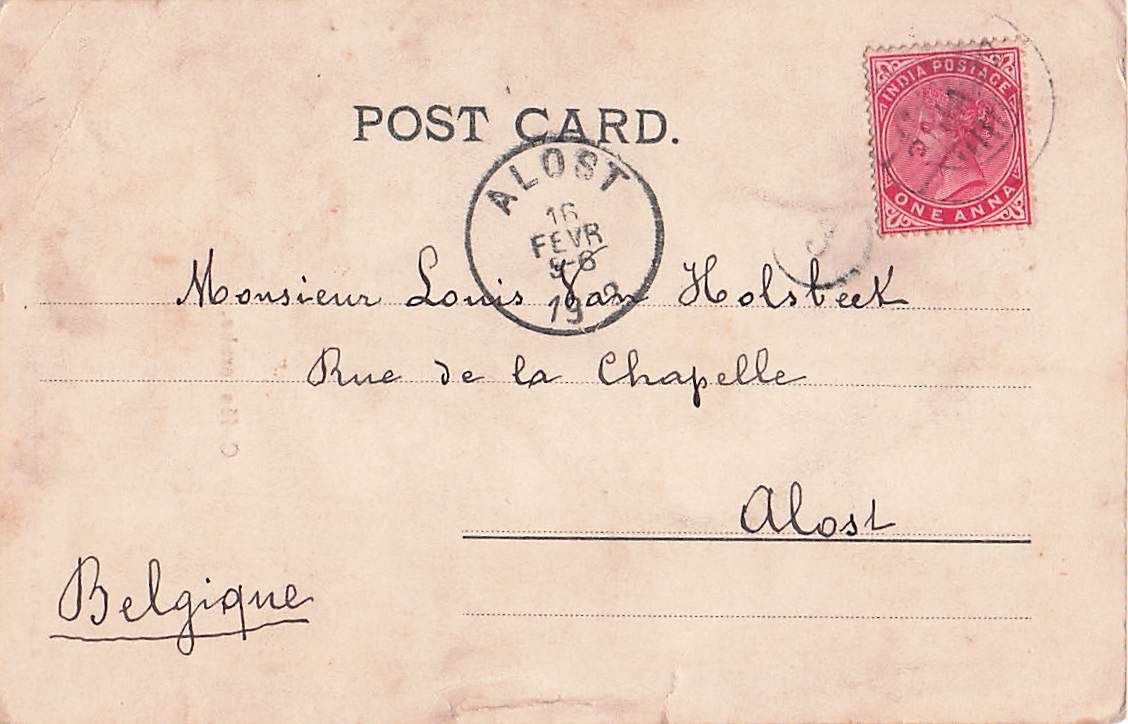 POST CARD.
INDIA POSTAGE
ONE ANNA
ALOST
16
FEVR
19
Monsieur Louis Van Holsbeek
Rue de la Chapelle
Alost
Belgique